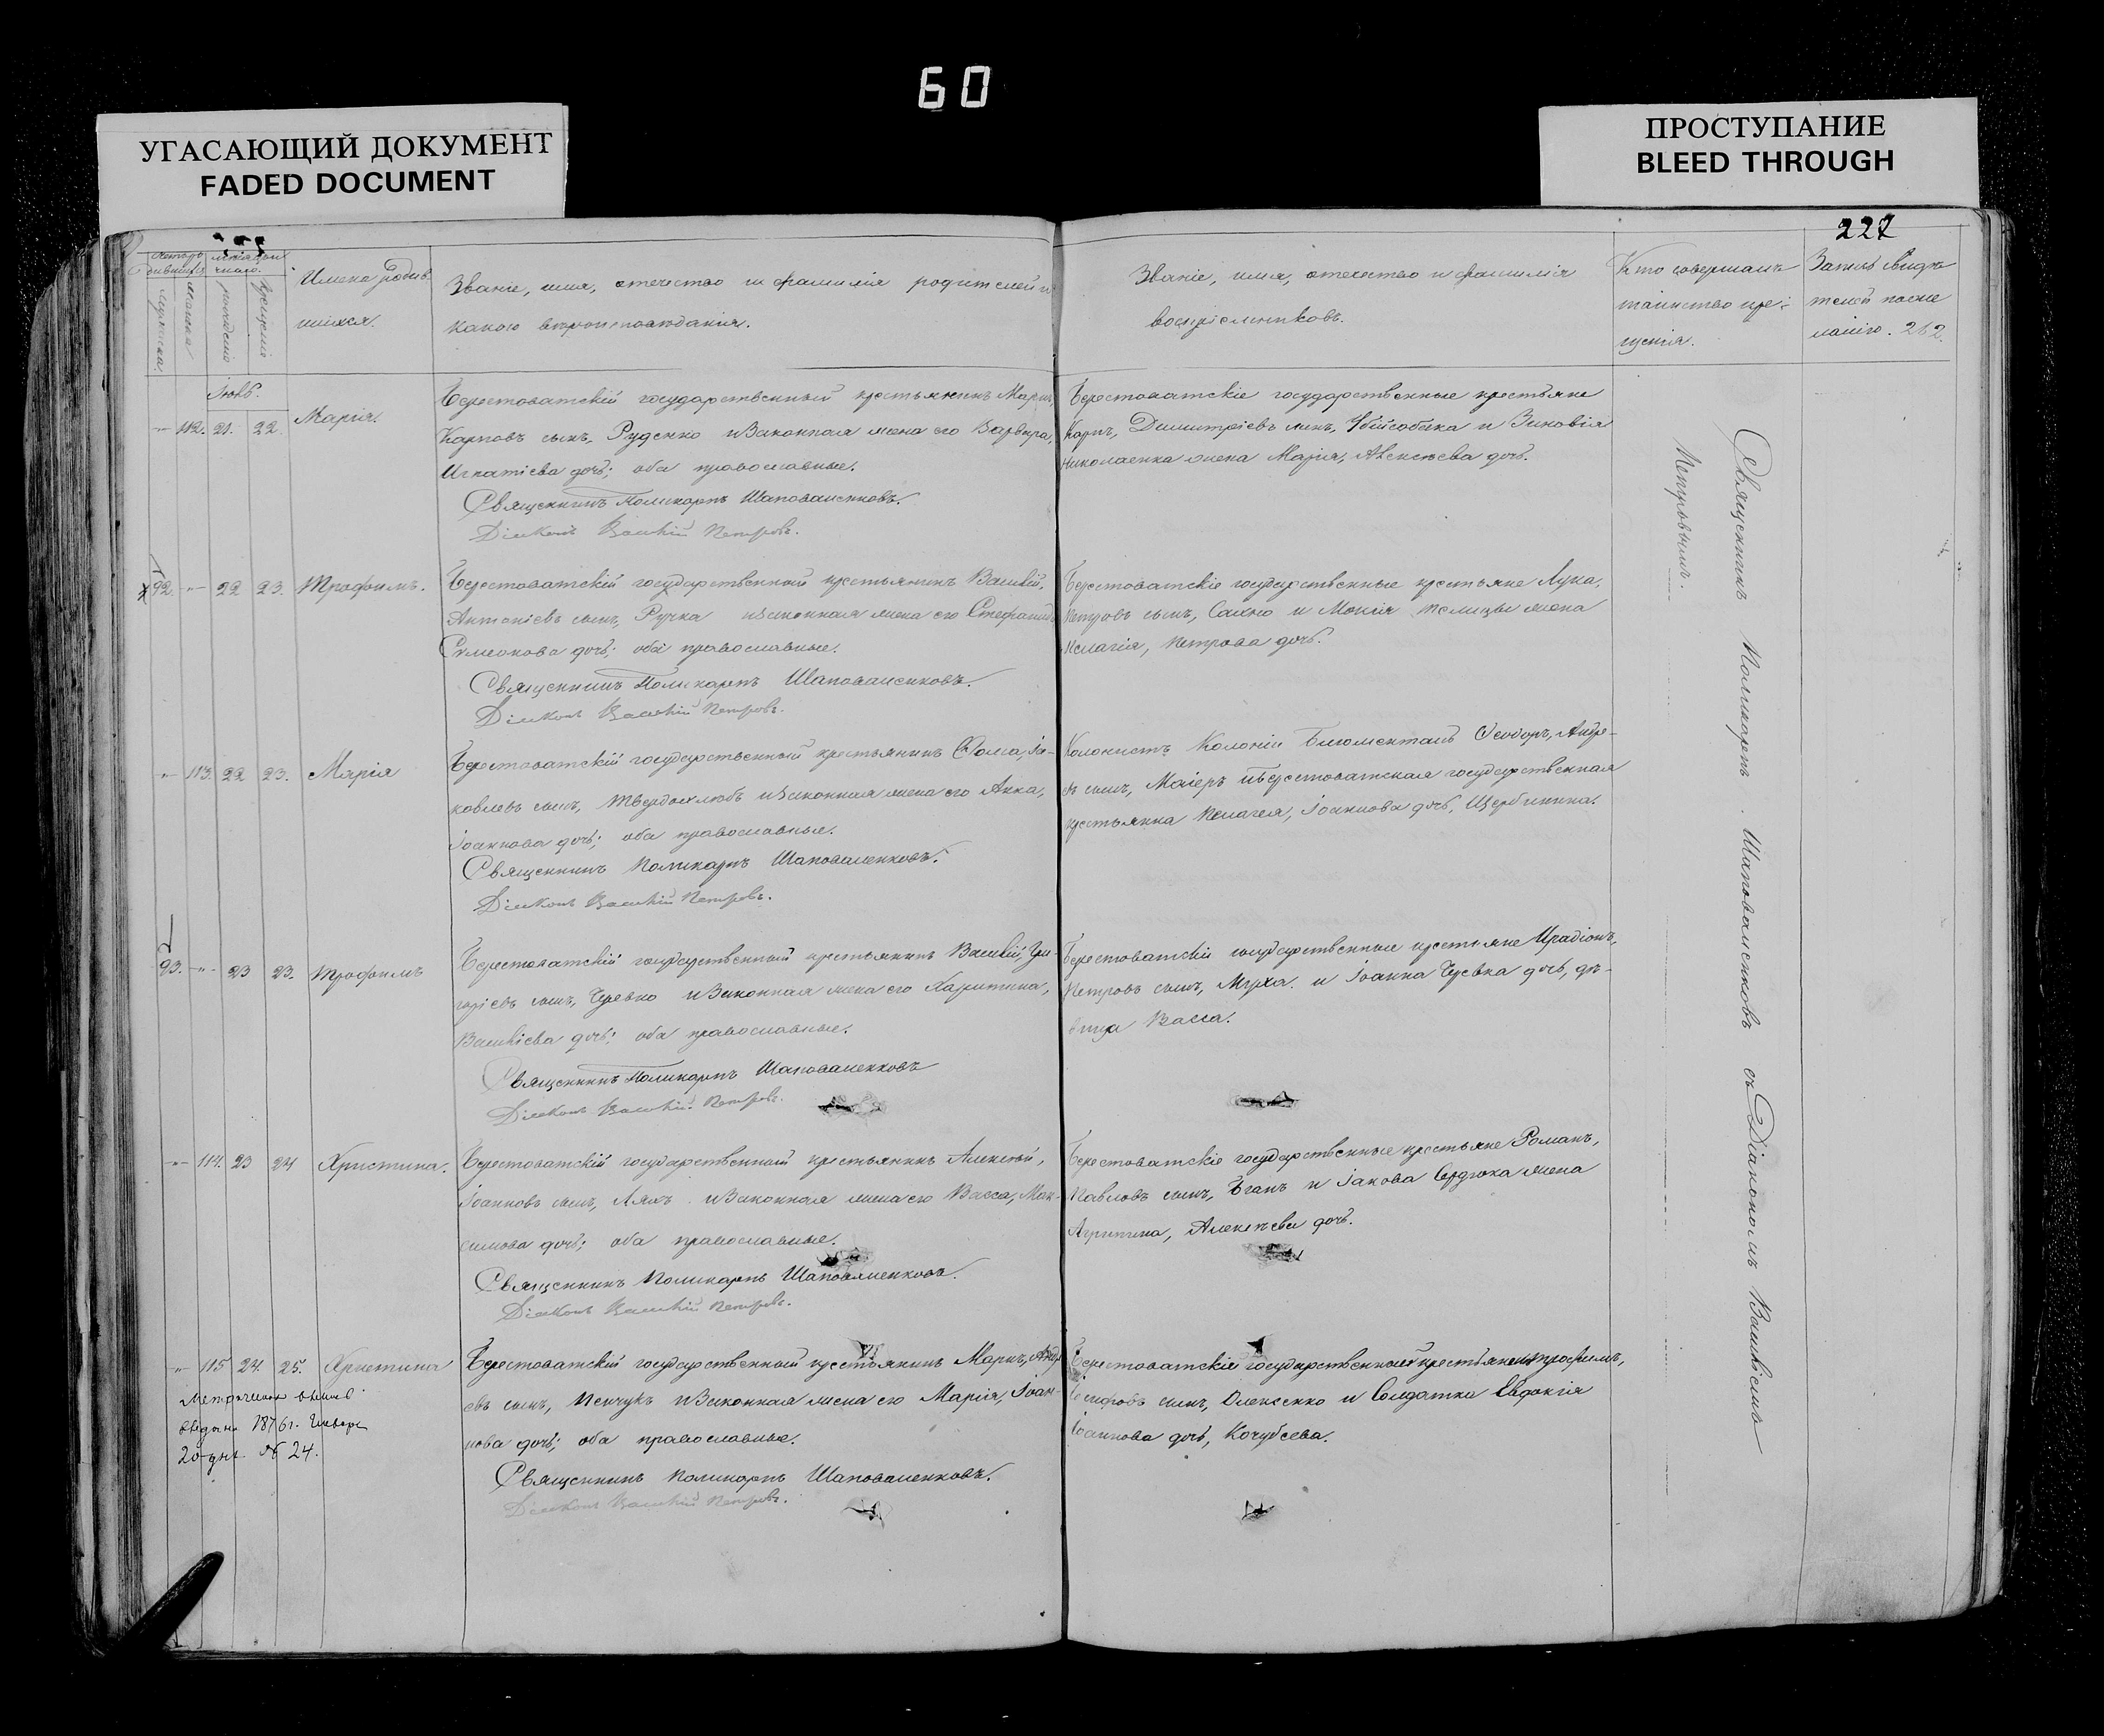 60
УГАСАЮЩИЙ ДОКУМЕНТ
FADED DOCUMENT
ПРОСТУПАНИЕ
BLEED THROUGH
227
Имена родив-
шихся.
Званіе, имя, отечество и фамилія родителей и
какого вѣроисповѣданія.
Званіе, имя, отечество и фамилія
воспріемниковъ.
Кто совершалъ
таинство кре-
щенія.
112. 21. 22. Марія.
Берестоватскій государственный крестьянинъ Маркъ,
Карповъ сынъ, Руденко и законная жена его Варвара,
Игнатіева дочь; оба православные.
Священникъ Поликарпъ Шаповаленковъ.
Діаконъ Василій Петровъ.
Берестоватскіе государственные крестьяне
Карпъ, Димитріевъ сынъ, Убійсобака и Зиновія
Николаенка жена Марія, Алексѣева дочь.
92. 22 23. Трофимъ.
Берестоватскій государственный крестьянинъ Василій,
Антоніевъ сынъ, Ручка и законная жена его Стефанида
Симеонова дочь; оба православные.
Священникъ Поликарпъ Шаповаленковъ.
Діаконъ Василій Петровъ.
Берестоватскіе государственные крестьяне Лука,
Петровъ сынъ, Сахно и жена
Пелагія, Петрова дочь.
113. 22 23. Марія
Берестоватскій государственный крестьянинъ Ѳома, Іа-
ковлевъ сынъ, Твердохлѣбъ и законная жена его Анна,
Іоаннова дочь; оба православные.
Священникъ Поликарпъ Шаповаленковъ.
Діаконъ Василій Петровъ.
Колонистъ Колоніи Блюменталь Ѳеодоръ, Андре-
въ сынъ, Маіеръ и Берестоватская государственная
крестьянка Пелагея, Іоаннова дочь, Щербинина.
93. 23 23. Трофимъ
Берестоватскій государственный крестьянинъ Василій, Гри-
горіевъ сынъ, Черевко и законная жена его Харитина,
Василіева дочь; оба православные.
Священникъ Поликарпъ Шаповаленковъ
Діаконъ Василій Петровъ.
Берестоватскіе государственные крестьяне Иродіонъ,
Петровъ сынъ, Муха и Іоанна дочь, дѣ-
вица Васса.
114. 23 24 Христина.
Берестоватскій государственный крестьянинъ Алексѣй,
Іоанновъ сынъ, Ляхъ и законная жена его Васса, Мак-
симова дочь; оба православные.
Священникъ Поликарпъ Шаповаленковъ.
Діаконъ Василій Петровъ.
Берестоватскіе государственные крестьяне Романъ,
Павловъ сынъ, и Іакова Сердюка жена
Агрипина, Алексѣева дочь.
115 24. 25. Христина
Берестоватскій государственный крестьянинъ Маркъ, Андре-
евъ сынъ, Пенчукъ и законная жена его Марія, Іоан-
нова дочь; оба православные.
Священникъ Поликарпъ Шаповаленковъ.
Діаконъ Василій Петровъ.
Берестоватскіе государственный крестьянинъ Трофимъ,
сынъ, Олексенко и Солдатка Евдокія
Іоаннова дочь, Кочубеева.
1876 г. Января
20 дня № 24.
Священникъ Поликарпъ Шаповаленковъ съ Діакономъ Василіемъ
Петровымъ.